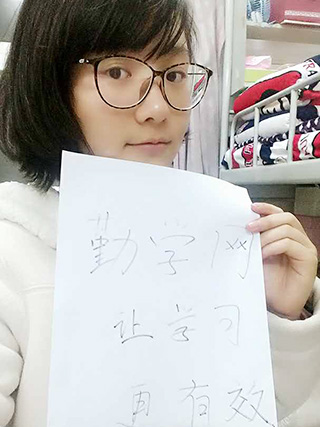 勤学网
让学习
更有效